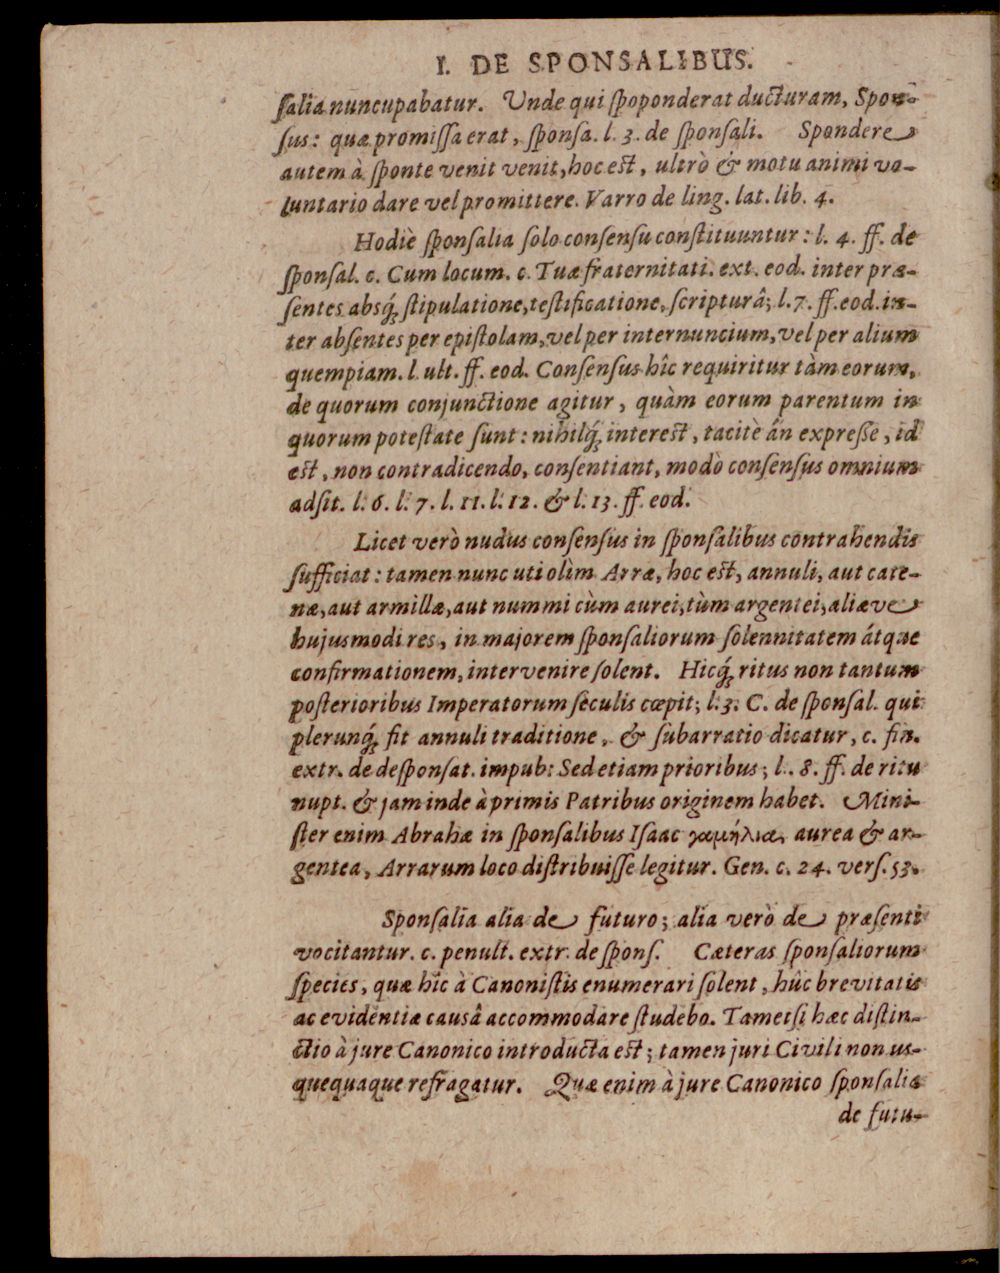 I. DE SPONSALIBUS.
ſalia nuncupabatur. Unde qui ſpoponderat ducturam, Spon-
ſus: quæ promiſſa erat, ſponſa. l. 3. de ſponſali. Spondere
autem à ſponte venit venit, hoc est, ultrò & motu animi vo-
luntario dare vel promittere. Varro de ling. lat. lib. 4.
Hodiè ſponſalia ſolo conſenſu conſtituuntur: l. 4. ff. de
ſponſal. c. Cum locum. c. Tuæ fraternitati. ext. eod. inter præ-
ſentes absq́; ſtipulatione, teſtificatione, ſcripturâ; l. 7. ff. eod. in-
ter abſentes per epiſtolam, vel per internuncium, vel per alium
quempiam. l. ult. ff. eod. Conſenſus hîc requiritur tàm eorum,
de quorum conjunctione agitur, quàm eorum parentum in
quorum poteſtate ſunt: nihilq́; intereſt, tacitè ân expreſſe, id
est, non contradicendo, conſentiant, modò conſenſus omnium
adſit. l. 6. l. 7. l. 11. l. 12. & l. 13. ff. eod.
Licet verò nudus conſenſus in ſponſalibus contrahendis
ſufficiat: tamen nunc uti olìm Arræ, hoc est, annuli, aut cate-
næ, aut armillæ, aut nummi cùm aurei, tùm argentei, aliæve
hujusmodi res, in majorem ſponſaliorum ſolennitatem átque
confirmationem, intervenire ſolent. Hicq́; ritus non tantum
poſterioribus Imperatorum ſeculis cœpit; l. 3. C. de ſponſal. qui
plerunq́; fit annuli traditione, & ſubarratio dicatur, c. fin.
extr. de deſponſat. impub: Sed etiam prioribus; l. 8. ff. de ritu
nupt. & jam inde à primis Patribus originem habet. Mini-
ſter enim Abrahæ in ſponſalibus Iſaac γαμήλια, aurea & ar-
gentea, Arrarum loco diſtribuiſſe legitur. Gen. c. 24. verſ. 53.
Sponſalia alia de futuro; alia verò de præſenti
vocitantur. c. penult. extr. de ſponſ. Cæteras ſponſaliorum
ſpecies, quæ hîc à Canoniſtis enumerari ſolent, hûc brevitatis
ac evidentiæ causâ accommodare ſtudebo. Tametſi hæc diſtin-
ctio à jure Canonico introducta est; tamen juri Civili non us-
quequaque refragatur. Quæ enim à jure Canonico ſponſalia
de futu-